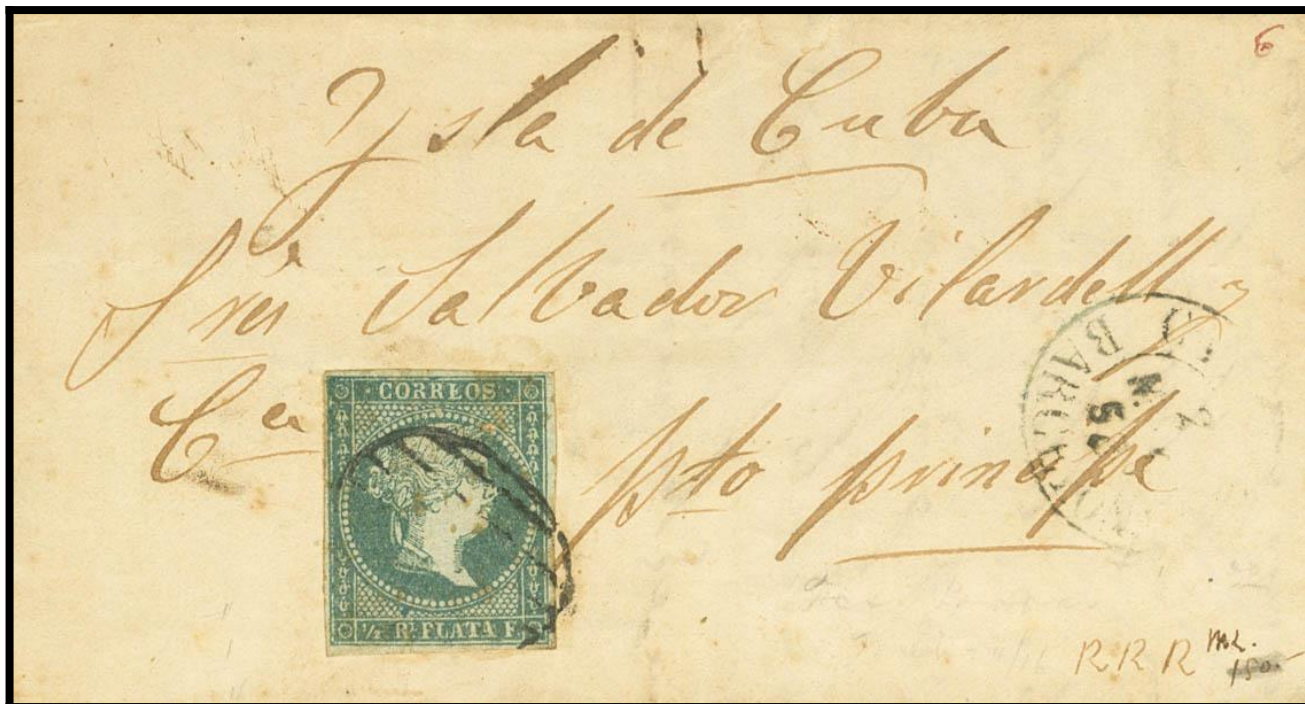 6
Ysla de Cuba
Sres Salvador Vilardell y
Ca
pto principe
CORREOS
1/2 Rl. PLATA F.
BARCELONA
RRR
ML.
150-